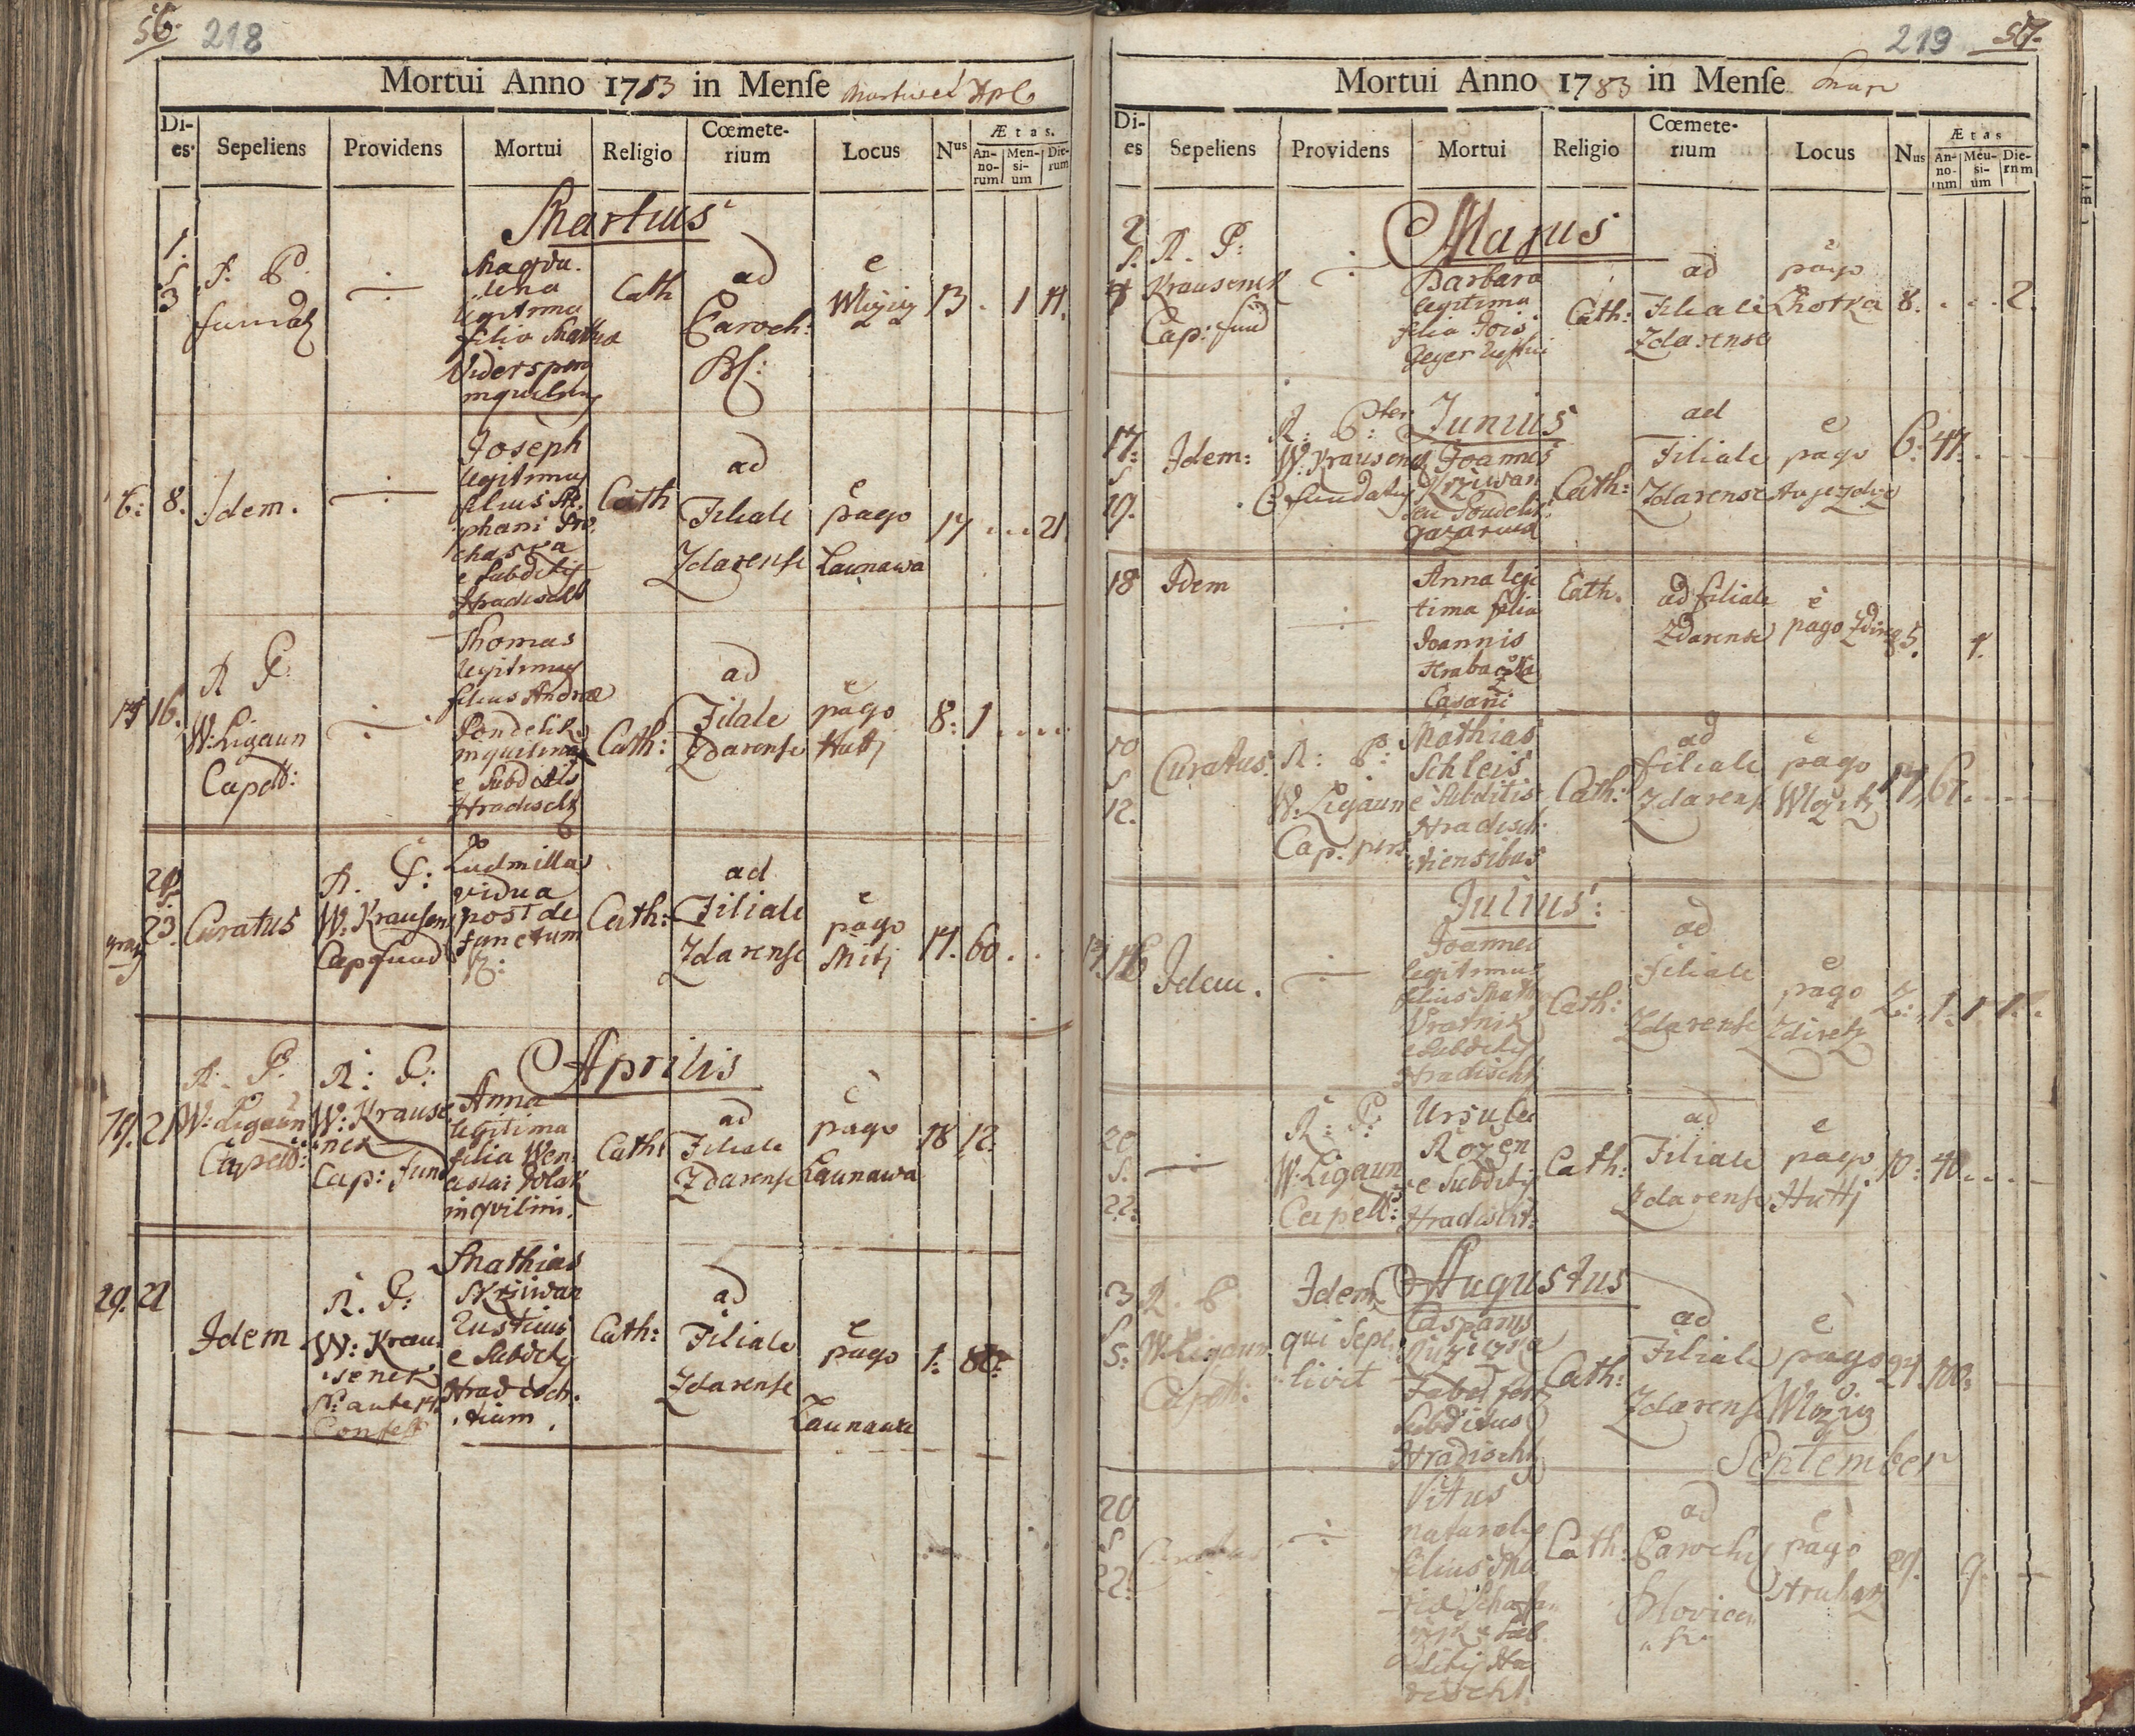 56. 218
Mortui Anno 1783 in Mense Martius et Apl
Di-es. Sepeliens Providens Mortui Religio Cœmete-rium Locus Nus Ætas. An-no-rum Men-si-um Die-rum
Martius
1.
S
3
P.
Magda
lena
legitima
filia Mathia
Cath
ad
Paroch:
Bl:
e
Wlcziz
13. 1 14.
inquilini
6: 8. Idem.
Joseph
legitimus
filius Ste
phani Pro
chaska
e subditis
Hradischt
Cath
ad
Filiale
Zdarense
e
pago
Launawa
14 ... 21
14 16.
R P.
W: Ligaun
Capell:
Thomas
legitimus
filius Andreæ
Pondelik
inquilini
e Subditis
Hradischt
Cath:
ad
Filiale
Zdarense
e
pago
Hutj
8: 1 ....
21.
23.
Curatus
R. P:
W: Krausen
Cap fund
Ludmilla
vidua
post de
functum
Cath:
ad
Filiale
Zdarense
e
pago
Mitj
14. 60 . .
Aprilis
19. 21
R. P.
W: Ligaun
Capell:
R: P:
W: Krause
nek
Cap: fund
Anna
legitima
filia Wen
ceslai Polak
inqvilini.
Cath:
ad
Filiale
Zdarense
e
pago
Launawa
18 12.
29. 21
Idem
R. P:
W: Krau
senek
Mathias
Skrziwan
Rusticus
e Subditis
Hradisch
tium.
Cath:
ad
Filiale
Zdarense
e
pago
Launawa
1:
219 57.
Mortui Anno 1783 in Mense
Di-es Sepeliens Providens Mortui Religio Cœmete-rium Locus Nus Ætas An-no-rum Men-si-um Die-rum
Majus
2
S.
4
R. P:
Krausenek
Cap: fund
Barbara
legitima
filia Jois
Geyer Rustici
Cath:
ad
Filiale
Zdarense
e
pago
Lhotka
8. . . . 2.
Junius
17.
S
19.
Idem:
R: Pter
W: Krausenek
C: fundatus
Joannes
Krziwan
seu Pondelik
Cath:
ad
Filiale
Zdarense
e
pago
Augezdze
6: 47. .
18 Idem
Anna legi
tima filia
Joannis
Hrabaczka
Casarii
Cath.
ad filiale
Zdarense
e
pago
5. 1.
10
S
12.
Curatus.
R: P:
W: Ligaun
Cap: pers
Mathias
Schleis
e Subditis
Hradisch
tiensibus
Cath:
ad
filiale
Zdarense
e
pago
Wlczitz
17. 61. ....
Julius:
14. 16
Idem.
Joannes
legitimus
filius Math
Vratnik
e Subditis
Hradischt
Cath:
ad
filiale
Zdarense
e
pago
Zdiretz
2: 1. 1 1.
20
S.
22:
R: P:
W: Ligaun
Capell:
Ursula
Rozen
e Subditis
Hradischt:
Cath:
ad
Filiale
Zdarense
e
pago
Huttj
10: 40. ...
Augustus
3
S
5:
R. P.
W: Ligaun
Capell:
Idem
qui Sepe
livit
Casparus
Ruziczka
Faber fer
Subditus
Hradischt
Cath:
ad
Filiale
Zdarense
e
pago
Wlcziz
24 100:
September
20
S
22.
Curatus
Vitus
naturalis
filius Ma
riæ
ditis Hra
discht
Cath:
ad
Parochi
Blovicen
se
e
pago
Struhar
21. 9.